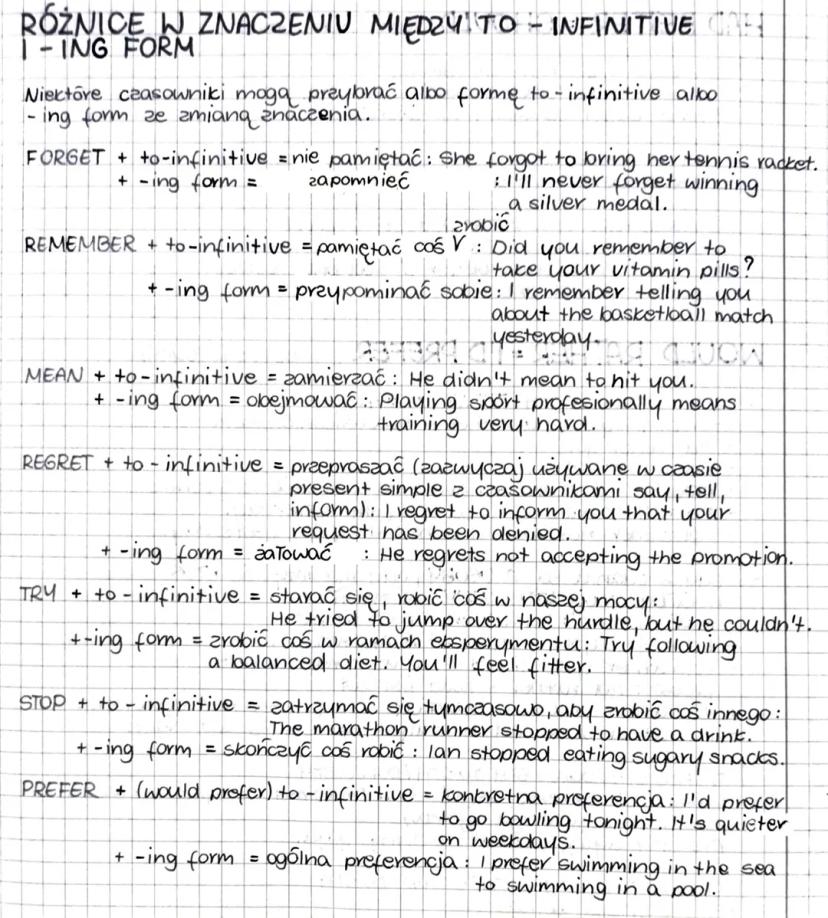 RÓŻNICE W ZNACZENIU MIĘDZY TO - INFINITIVE
I - ING FORM
Niektóre czasowniki mogą przybrać albo formę to - infinitive albo
- ing form ze zmianą znaczenia.
FORGET + to-infinitive = nie pamiętać : She forgot to bring her tennis racket.
+ -ing form = zapomnieć : I'll never forget winning
a silver medal.
zrobić
REMEMBER + to-infinitive = pamiętać coś V : Did you remember to
take your vitamin pills?
+ -ing form = przypominać sobie : I remember telling you
about the basketball match
yesterday.
WOULD PREFER
MEAN + to-infinitive = zamierzać : He didn't mean to hit you.
+ -ing form = obejmować : Playing sport profesionally means
training very hard.
REGRET + to - infinitive = przepraszać (zazwyczaj używane w czasie
present simple z czasownikami say, tell,
inform) : I regret to inform you that your
request has been denied.
+ -ing form = żałować : He regrets not accepting the promotion.
TRY + to - infinitive = starać się, robić coś w naszej mocy :
He tried to jump over the hurdle, but he couldn't.
+ -ing form = zrobić coś w ramach eksperymentu : Try following
a balanced diet. You'll feel fitter.
STOP + to - infinitive = zatrzymać się tymczasowo, aby zrobić coś innego :
The marathon runner stopped to have a drink.
+ -ing form = skończyć coś robić : Ian stopped eating sugary snacks.
PREFER + (would prefer) to - infinitive = konkretna preferencja : I'd prefer
to go bowling tonight. It's quieter
on weekdays.
+ -ing form = ogólna preferencja : I prefer swimming in the sea
to swimming in a pool.